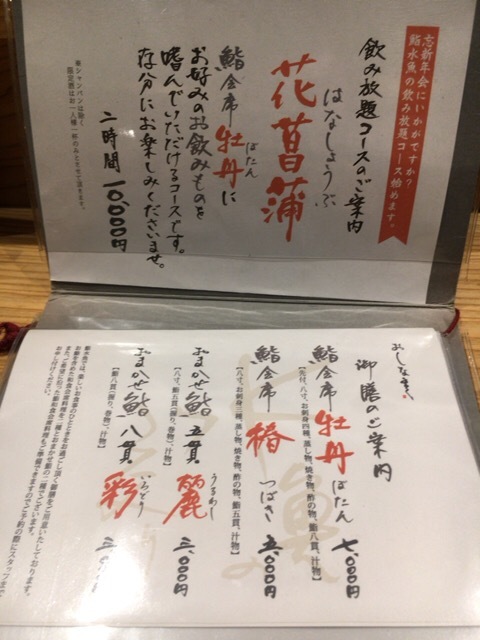 忘新年会にいかがですか?
鮨水魚の飲み放題コース始めます。
飲み放題コースのご案内
はなしょうぶ
花菖蒲
鮨会席 牡丹に
ぼたん
お好みのお飲みものを
嗜んでいただけるコースです。
存分にお楽しみくださいませ。
二時間 一〇、〇〇〇円
おしながき
御膳のご案内
鮨会席 牡丹 ぼたん 七、〇〇〇円
【先付、八寸、お刺身四種、蒸し物、焼き物、酢の物、鮨八貫、汁物】
鮨会席 椿 つばき 五、〇〇〇円
【八寸、お刺身三種、蒸し物、焼き物、酢の物、鮨五貫、汁物】
おまかせ鮨 五貫 麗 うるわし 三、〇〇〇円
【八寸、鮨五貫(握り、巻物)、汁物】
おまかせ鮨 八貫 彩 いろどり
【鮨八貫(握り、巻物)、汁物】